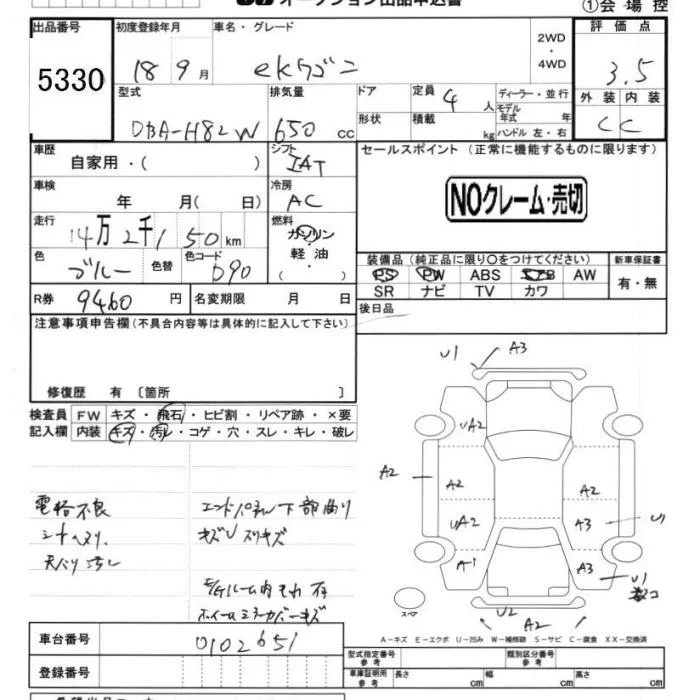 オークション出品申込書
①会場控
出品番号 5330
初度登録年月 18 9月
車名・グレード ekワゴン
2WD・4WD
評価点 3.5
型式 DBA-H82W
排気量 650 cc
ドア 形状
定員 4 人
積載 kg
ディーラー・並行
モデル年式 年
ハンドル 左・右
外装 内装
C C
車歴 自家用・( )
シフト IAT
セールスポイント (正常に機能するものに限ります)
NOクレーム・売切
車検 年 月( 日)
冷房 AC
走行 14万2千150km
燃料 ガソリン・軽油・( )
色 ブルー 色替 色コード D90
装備品 (純正品に限り〇をつけてください)
PS PW ABS エアB AW
SR ナビ TV カワ
新車保証書 有・無
R券 9460円
名変期限 月 日
後日品
注意事項申告欄(不具合内容等は具体的に記入して下さい)
修復歴 有 〔箇所 〕
検査員記入欄
FW キズ・飛石・ヒビ割・リペア跡・×要
内装 キズ・汚レ・コゲ・穴・スレ・キレ・破レ
電格不良
シートヘタリ
天バリ汚レ
エンドパネル下部曲り
キズU スリキズ
U1 A3
UA2
A2 A2 A2
UA2 A3 U1
A1 A3 U1
U2 A2
スペア
A-キズ E-エクボ U-凹み W-補修跡 S-サビ C-腐食 XX-交換済
車台番号 0102651
登録番号
型式指定番号 参考
類別区分番号 参考
車庫証明用 参考 長さ cm 幅 cm 高さ cm